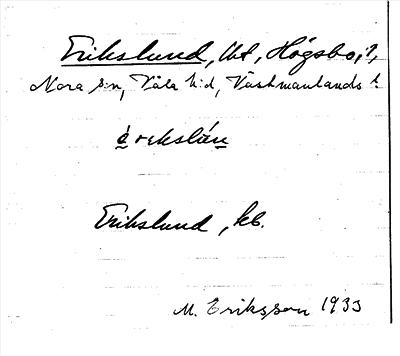 Erikslund, lht, Högsbo, ?,
Nora sn, Våla h:d, Västmanlands l.
è̱rekslúṉ
Erikslund, kb.
M. Eriksson 1933